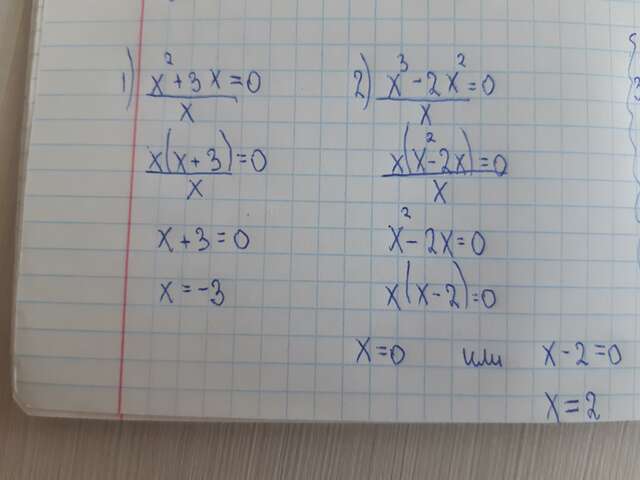 1) (x² + 3x)/x = 0
x(x + 3)/x = 0
x + 3 = 0
x = -3
2) (x³ - 2x²)/x = 0
x(x² - 2x)/x = 0
x² - 2x = 0
x(x - 2) = 0
x = 0 или x - 2 = 0
x = 2